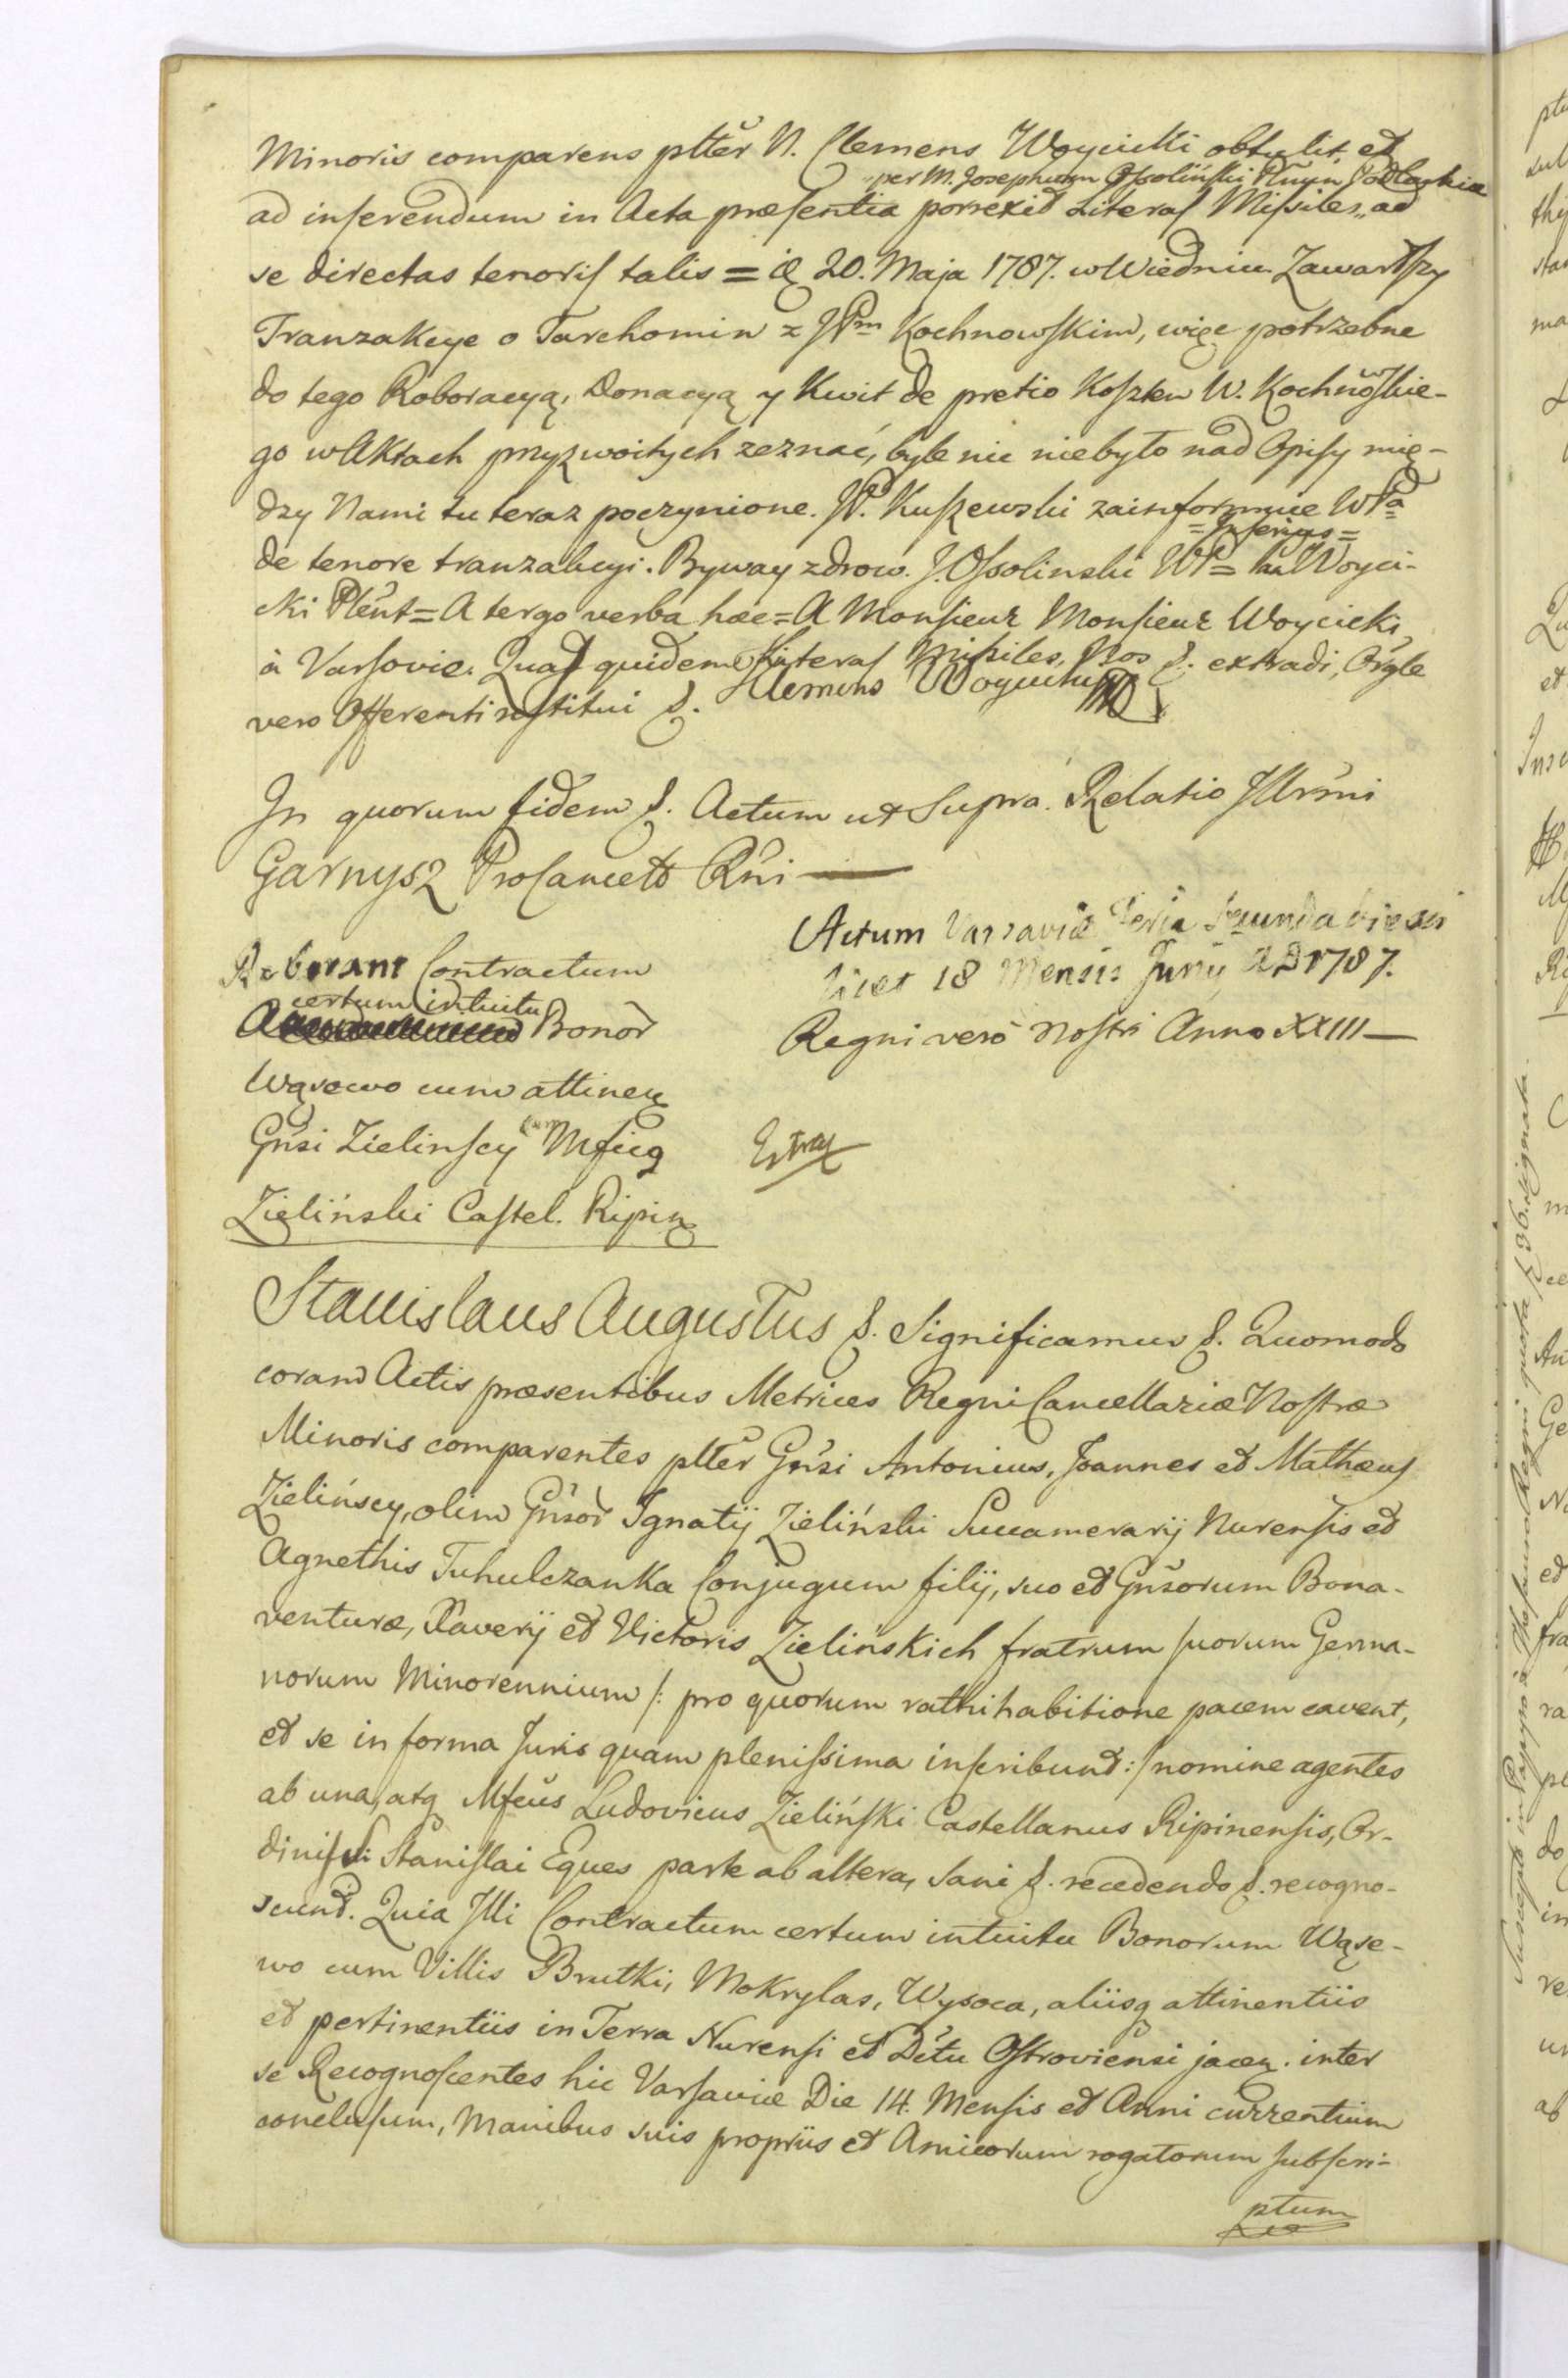 Minoris comparens ptter N. Clemens Woycicki obtulit et
per M. Josephum Ossoliński Podlachiæ
ad inserendum in Acta præsentia porrexit Literas Missiles, ad
se directas tenoris talis = 20. Maja 1787. w Wiedniu Zawarłszy
Tranzakcye o Tarchomin z JPm Kochnowskim, więc potrzebne
do tego Roboracyą, Donacyą y Kwit de pretio Kosztem W. Kochnowskie-
go w Aktach przyzwoitych zeznać, byle nic niebyło nad Opisy mię-
dzy Nami tu teraz poczynione. JP. Kuszewski zainformuie WPa
= Inferius =
de tenore tranzakcyi. Byway zdrow. J. Ossolinski WP = Woyci-
cki Plent = A tergo verba hæc = A Monsieur Monsieur Woycicki
à Varsovie. Quas quidem Literas Missiles, Nos &. extradi, Orgle
vero Offerenti restitui &. Klemens Woycicki
In quorum fidem &. Actum ut Supra. Relatio Illrmi
Garnysz ProCancell Rni —
Actum Varsaviæ Feria Secunda
licet 18 Mensis Junij AD 1787.
Regni vero Nostri Anno XXIII —
Roborant Contractum
certum intuitu
Bonor
Wąsewo cum attinen
Gnsi Zielinscy cum Mfico
Zieliński Castel. Ripin
Extrad
Stanislaus Augustus &. Significamus &. Quomodo
coram Actis præsentibus Metrices Regni Cancellariæ Nostræ
Minoris comparentes ptter Gnsi Antonius, Joannes et Mathæus
Zielińscy, olim Gnsor Ignatij Zieliński Succamerarij Nurensis et
Agnethis Tuhulczanka Conjugum filij, suo et Gnsorum Bona-
venturæ, Xaverij et Victoris Zielińskich fratrum suorum Germa-
norum Minorennium /: pro quorum rathihabitione pacem cavent,
et se in forma Juris quam plenissima inscribunt :/ nomine agentes
ab una, atq Mfcus Ludovicus Zieliński Castellanus Ripinensis, Or-
dinis S: Stanislai Eques parte ab altera, Sani &. recedendo &. recogno-
scund. Quia Illi Contractum certum intuitu Bonorum Wąse-
wo cum Villis Brutki, Mokrylas, Wysoca, aliisq attinentiis
et pertinentiis in Terra Nurensi et Dttu Ostroviensi jacen. inter
se Recognoscentes hic Varsaviæ Die 14. Mensis et Anni currentium
conclusum, Manibus suis propriis et Amicorum rogatorum subscri-
ptum